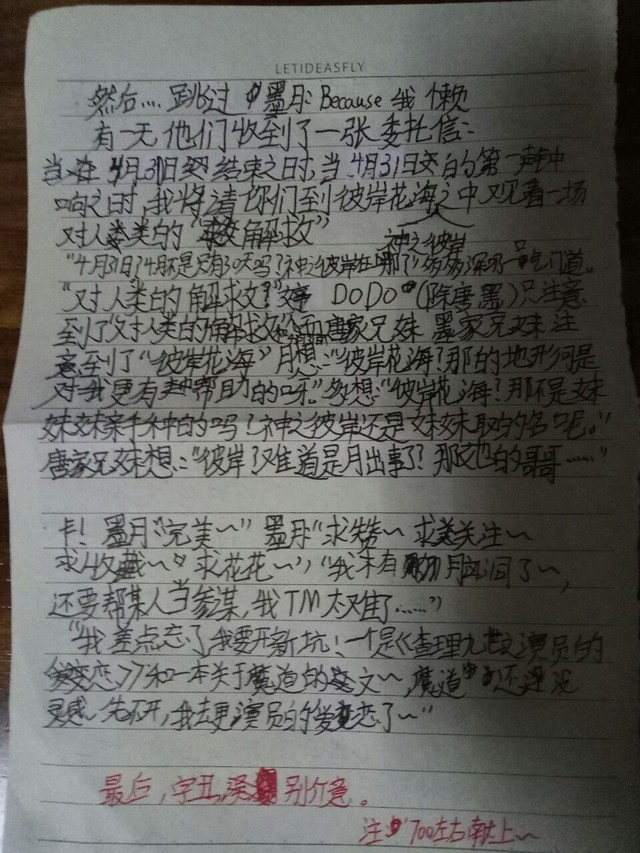 LETIDEASFLY
然后…. 跳过 墨月: Because 我 懒
有一天他们收到了一张委托信:
当在4月31日结束之时,当4月31日的第一声钟
响之时,我将请你们到彼岸花海之中观看一场
对人类的“解放”
神之彼岸
“4月31日?4月不是只有30天吗?神之彼岸在哪?”多多深吸一口气问道。
“对人类的解放?” DODO(除唐墨)只注意
到了“对人类的解放”而唐家兄妹 墨家兄妹 注
意到了“彼岸花海”月想:“彼岸花海?那的地形何是
对我更有帮助的呀。”多想:“彼岸花海?那不是妹
妹妹亲手种的吗?神之彼岸还是妹妹取的名呢。”
唐家兄妹想:“彼岸?难道是月出事了?那她的哥哥……”
卡! 墨月:“完美~” 墨月“求赞~ 求关注~
求收藏~ 求花花~”“我木有脑洞了~,
还要帮某人当参谋,我TM太难了……”
“我差点忘了我要开新坑!一个是《查理九世之演员的
恋》和一本关于魔道的文~,魔道还没
灵感~先不开,我去更演员的恋了~”
最后,字丑,深 别介意。
注 700左右献上~